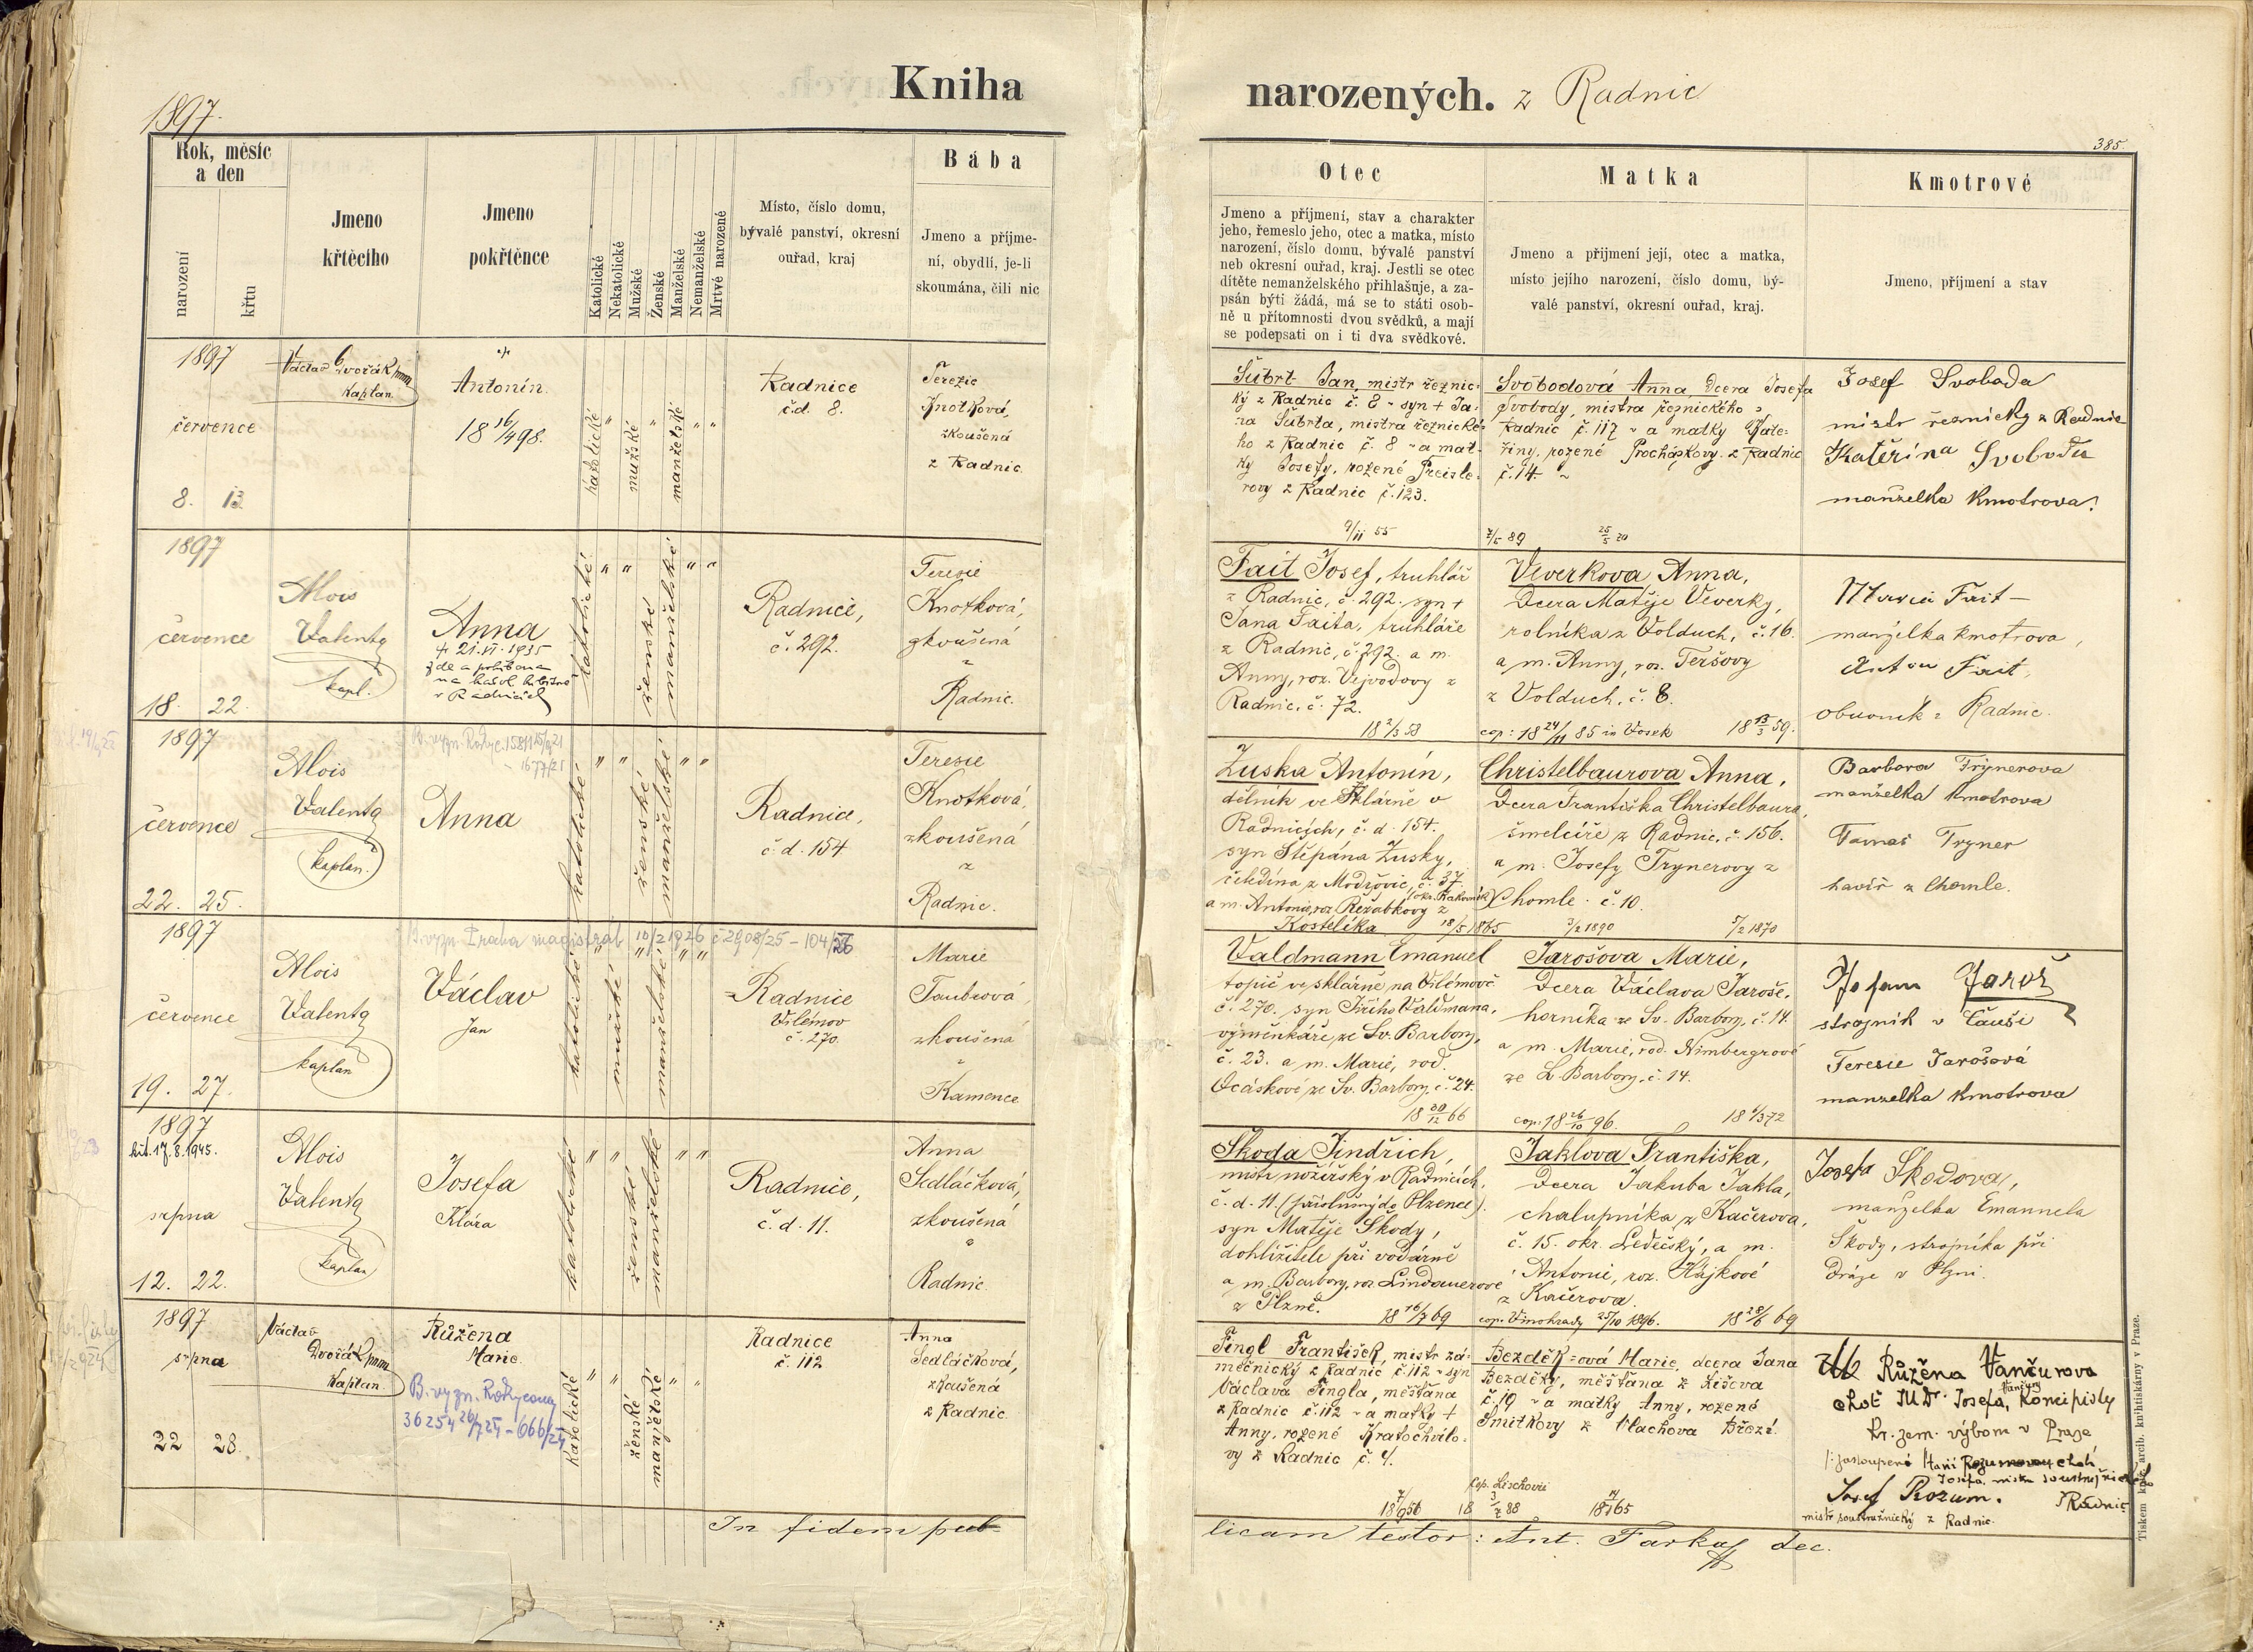 1897.
Kniha
narozených. z Radnic
385
Rok, měsíc
a den
narození
křtu
Jmeno
křtěcího
Jmeno
pokřtěnce
Katolické
Nekatolické
Mužské
Ženské
Manželské
Nemanželské
Mrtvě narozené
Místo, číslo domu,
bývalé panství, okresní
ouřad, kraj
Bába
Jmeno a příjme-
ní, obydlí, je-li
skoumána, čili nic
Otec
Jmeno a příjmení, stav a charakter
jeho, řemeslo jeho, otec a matka, místo
narození, číslo domu, bývalé panství
neb okresní ouřad, kraj. Jestli se otec
dítěte nemanželského přihlašuje, a za-
psán býti žádá, má se to státi osob-
ně u přítomnosti dvou svědků, a mají
se podepsati on i ti dva svědkové.
Matka
Jmeno a přijmení její, otec a matka,
místo jejího narození, číslo domu, bý-
valé panství, okresní ouřad, kraj.
Kmotrové
Jmeno, příjmení a stav
1897
července
8. 13.
Václav Dvořák
kaplan.
Antonín.
18 16/4 98.
katolické
"
mužské
"
manželské
" "
Radnice
č.d. 8.
Terezie
Knotková,
zkoušená
z Radnic
Šubrt Jan, mistr řeznic-
ký z Radnic č. 8 - syn + Ja-
na Šubrta, mistra řeznické-
ho z Radnic č. 8 - a mat-
ky Josefy, rozené Preisle-
rovy z Radnic č. 123.
9/11 55
Svobodová Anna, dcera Josefa
Svobody, mistra řeznického z
Radnic č. 117 - a matky Kate-
řiny, rozené Procházkovy z Radnic
č. 14.
89
25/5 70
Josef Svoboda
mistr řeznický z Radnic
Kateřina Svoboda
manželka kmotrova.
1897
července
18. 22.
Alois
Valenta
kapl.
Anna
+ 21.VI.1935
zde a pohřbena
na
v Radnicích
katolické
" "
ženské
manželské
" "
Radnice,
č. 292.
Teresie
Knotková,
zkoušená
z
Radnic.
Fait Josef, truhlář
z Radnic, č. 292. syn +
Jana Faita, truhláře
z Radnic, č. 292. a m.
Anny, roz. Vejvodovy z
Radnic, č. 72.
18 2/3 58
Veverkova Anna,
dcera Matěje Veverky,
rolníka z Volduch, č. 16.
a m. Anny, roz. Teršovy
z Volduch, č. 8.
cop: 18 24/11 85 in Vosek
18 13/3 59.
Marie Fait
manželka kmotrova,
Anton Fait,
obuvník z Radnic.
1897
července
22. 25.
Alois
Valenta
kaplan.
Anna
katolické
" "
ženské
manželské
" "
Radnice,
č. d. 154
Teresie
Knotková,
zkoušená
z
Radnic.
Zuska Antonín,
dělník ve sklárně v
Radnicích, č. d. 154.
syn Štěpána Zusky,
čeledína z Modřovic, č. 37.
(okr. Rakovník)
a m. Antonie, roz. Řežábkovy z
Kostelíka
18/5 1865
Christelbaurova Anna,
dcera Františka Christelbaura,
šmelcíře z Radnic, č. 156.
a m. Josefy Trynerovy z
Chomle. č. 10.
3/2 1890
5/2 1870
Barbora Trýnerova
manželka kmotrova
Tomaš Tryner
havíř z Chomle.
1897
července
19. 27.
Alois
Valenta
kaplan
B. vyzn. Praha magistrát 10/2 1926 č 2908/25 - 104/26
Václav
Jan
katolické
"
mužské
"
manželské
" "
Radnice
Vilémov
č. 270.
Marie
Taubrová,
zkoušená
z
Kamence
Valdmann Emanuel
topič ve sklárně na Vilémově
č. 270. syn Jiřího Valdmana,
výměnkáře ze Sv. Barbory,
č. 23. a m. Marie, rod.
Ocáskové ze Sv. Barbory, č. 24.
18 30/12 66
Jarošova Marie,
dcera Václava Jaroše,
horníka ze Sv. Barbory, č. 14.
a m. Marie, rod. Nimbergrové
ze S. Barbory, č. 14.
cop. 18 26/10 96.
18 4/3 72
Jaroš
strojník v
Teresie Jarošová
manzelka kmotrova
1897
bit. 17.8.1945.
srpna
12. 22.
Alois
Valenta
kaplan
Josefa
Klára
katolické
" "
ženské
manželské
" "
Radnice,
č. d. 11.
Anna
Sedláčková,
zkoušená
z
Radnic.
Škoda Jindřich,
mistr nožířský v Radnicích,
č. d. 11. (příslušný do Plzence).
syn Matěje Škody,
dohlížitele při vodárně
a m. Barbory, roz. Lindauerové
z Plzně.
18 16/7 69
Jahlova Františka,
dcera Jakuba Jahla,
chalupníka z Kačerova,
č. 15. okr. Ledečský, a m.
Antonie, roz. Hájkové
z Kačerova.
cop. Vinohrady 25/10 1896.
18 28/6 69
Josefa Škodova,
manželka Emanuela
Škody, strojníka při
dráze v Plzni.
1897
srpna
22 28.
Václav
Dvořák
kaplan.
Růžena
Marie.
B. vyzn. Rokycany
36254 26/7 24 - 666/24
katolické
" "
ženské
manželské
" "
Radnice
č. 112
Anna
Sedláčková,
zkoušená
z Radnic.
Fingl František, mistr zá-
mečnický z Radnic č. 112 - syn
Václava Fingla, měšťana
z Radnic č. 112 - a matky +
Anny, rozené Kratochvílo-
vy z Radnic č. 4.
Bezděk=ová Marie, dcera Jana
Bezděky, měšťana z Lišova
č. 19 - a matky Anny, rozené
Smítkovy z Vlachova Březí.
Cop. Lischovii
18 3/7 88
Růžěna Vančurova
choť JUDr. Josefa Vančury, koncipisty
kr. zem. výboru v Praze
Josef Rozum.
mistr soustružnický z Radnic.
In fidem pub-
licam testor: Ant. Farka dec.
Tiskem kníž. arcib. knihtiskárny v Praze.